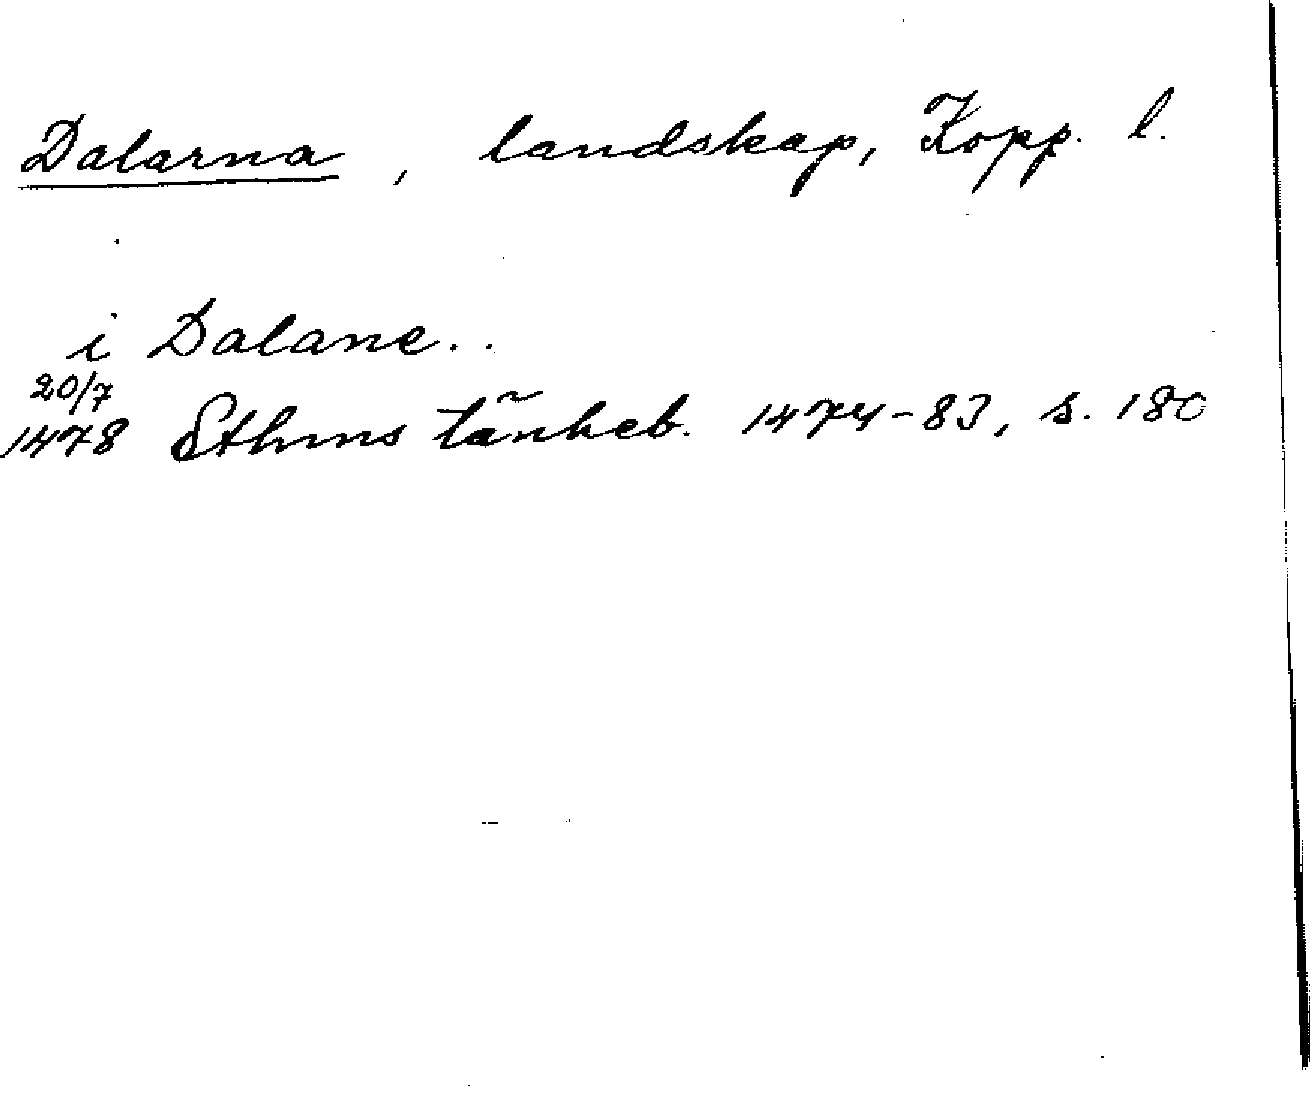 Dalarna, landskap, Kopp. l.
i Dalane..
20/7
1478 Sthms tänkeb. 1474-83, s. 180